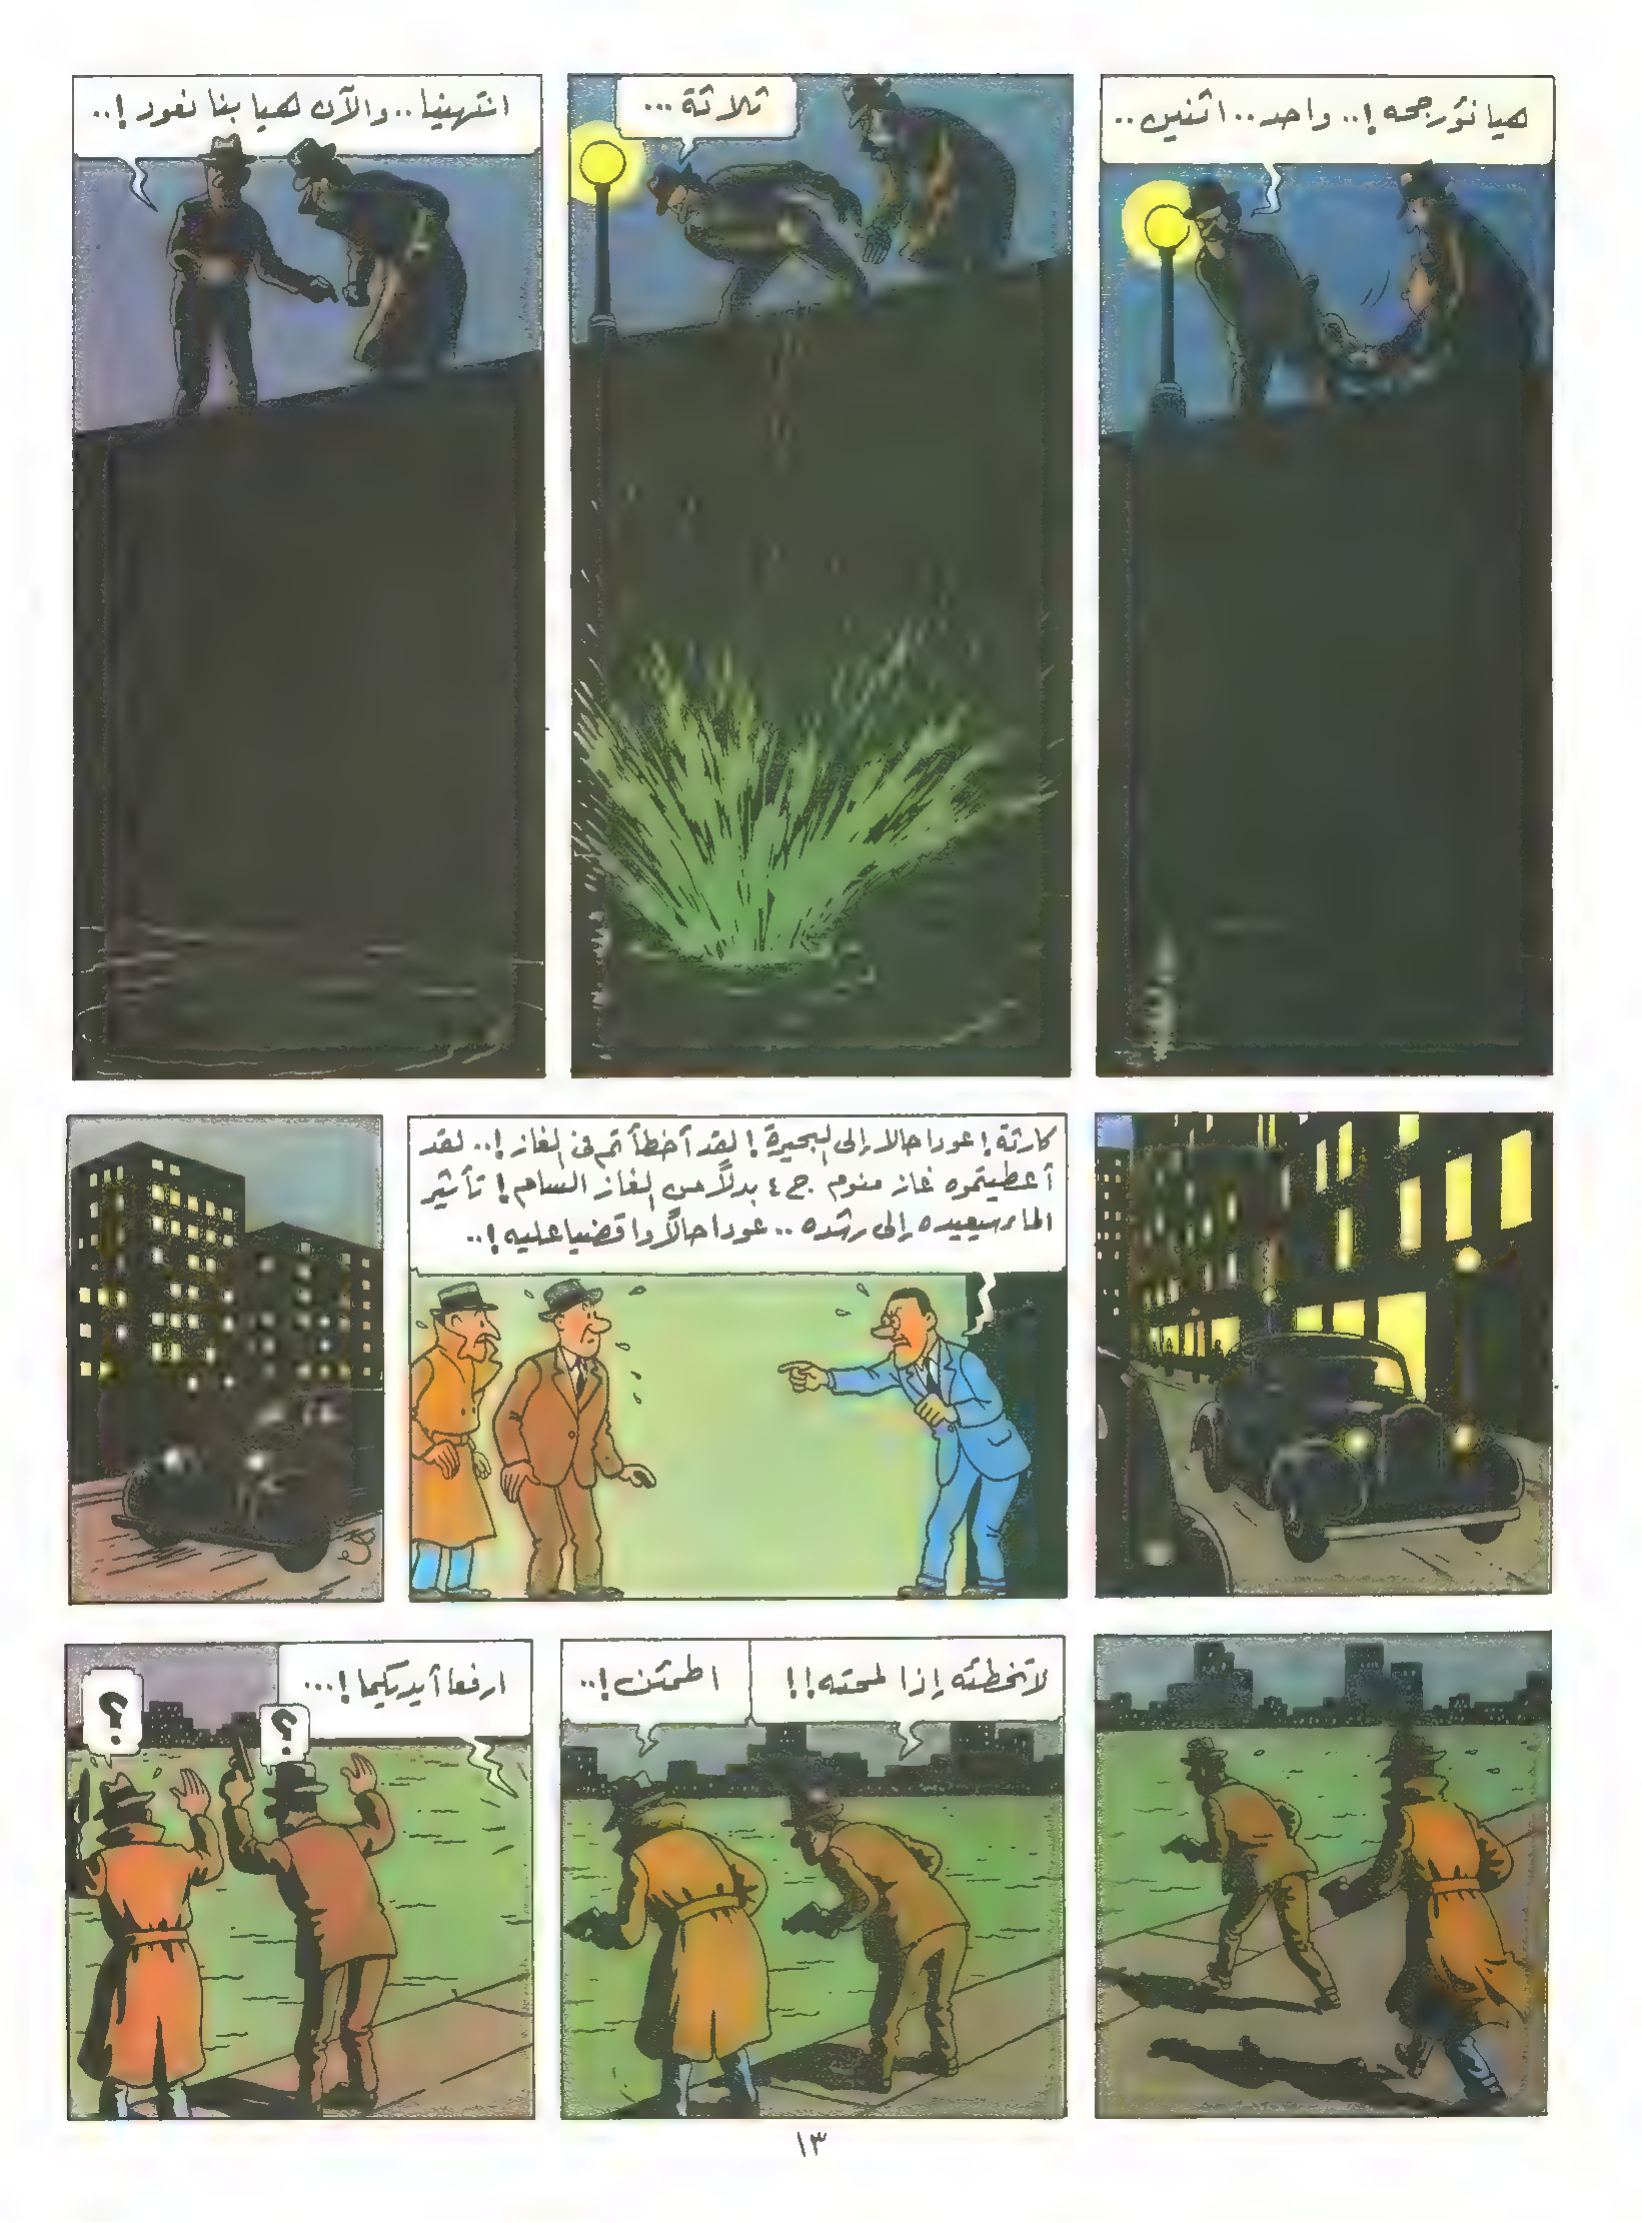 هيا نؤرجحه !.. واحد.. اثنين..
ثلاثة ...
انتهينا.. والآن هيا بنا نعود !..
كارثة ! عودا حالا إلى البحيرة ! لقد أخطأتم فى الغاز !.. لقد
أعطيتموه غاز منوم ج ٤ بدلاً من الغاز السام ! تأثير
الماء سيعيده إلى رشده .. عودا حالاً واقضيا عليه !..
لا تخطئه إذا لمحته !!
اطمئن !..
ارفعا أيديكما !...
؟
؟
١٣